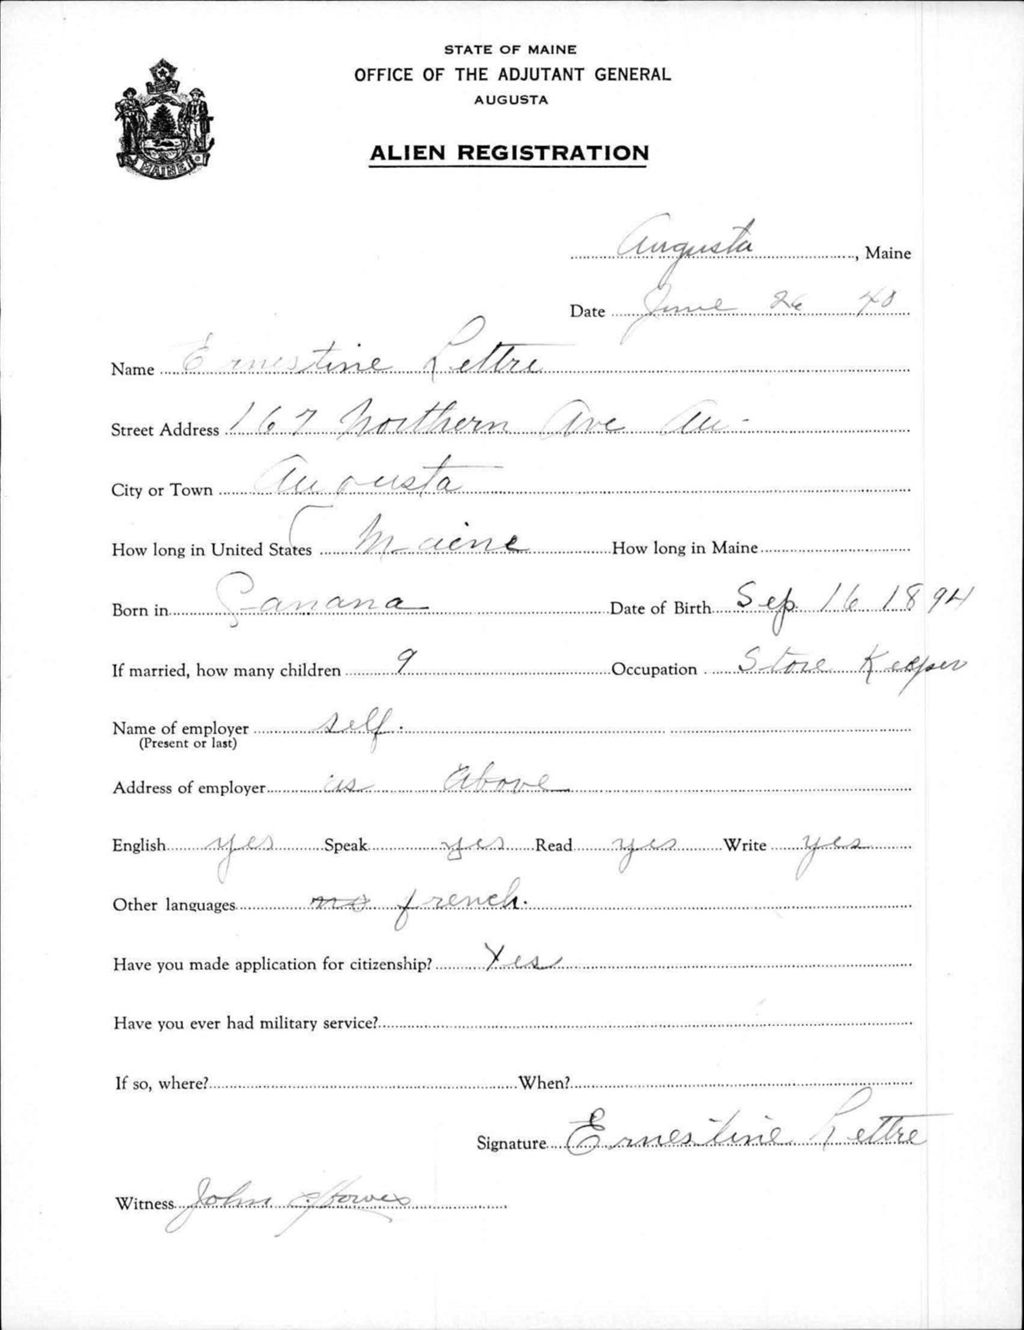 STATE OF MAINE
OFFICE OF THE ADJUTANT GENERAL
AUGUSTA
MAINE
ALIEN REGISTRATION
Augusta, Maine
Date June 26 40
Name Ernestine Lettre
Street Address 167 Northern Ave Au-
City or Town Augusta
How long in United States Maine How long in Maine
Born in Canana Date of Birth Sep. 16 1894
If married, how many children 9 Occupation Store Keeper
Name of employer self.
(Present or last)
Address of employer as Above
English yes Speak yes Read yes Write yes
Other languages no french.
Have you made application for citizenship? Yes
Have you ever had military service?
If so, where? When?
Signature Ernestine Lettre
Witness John Howes